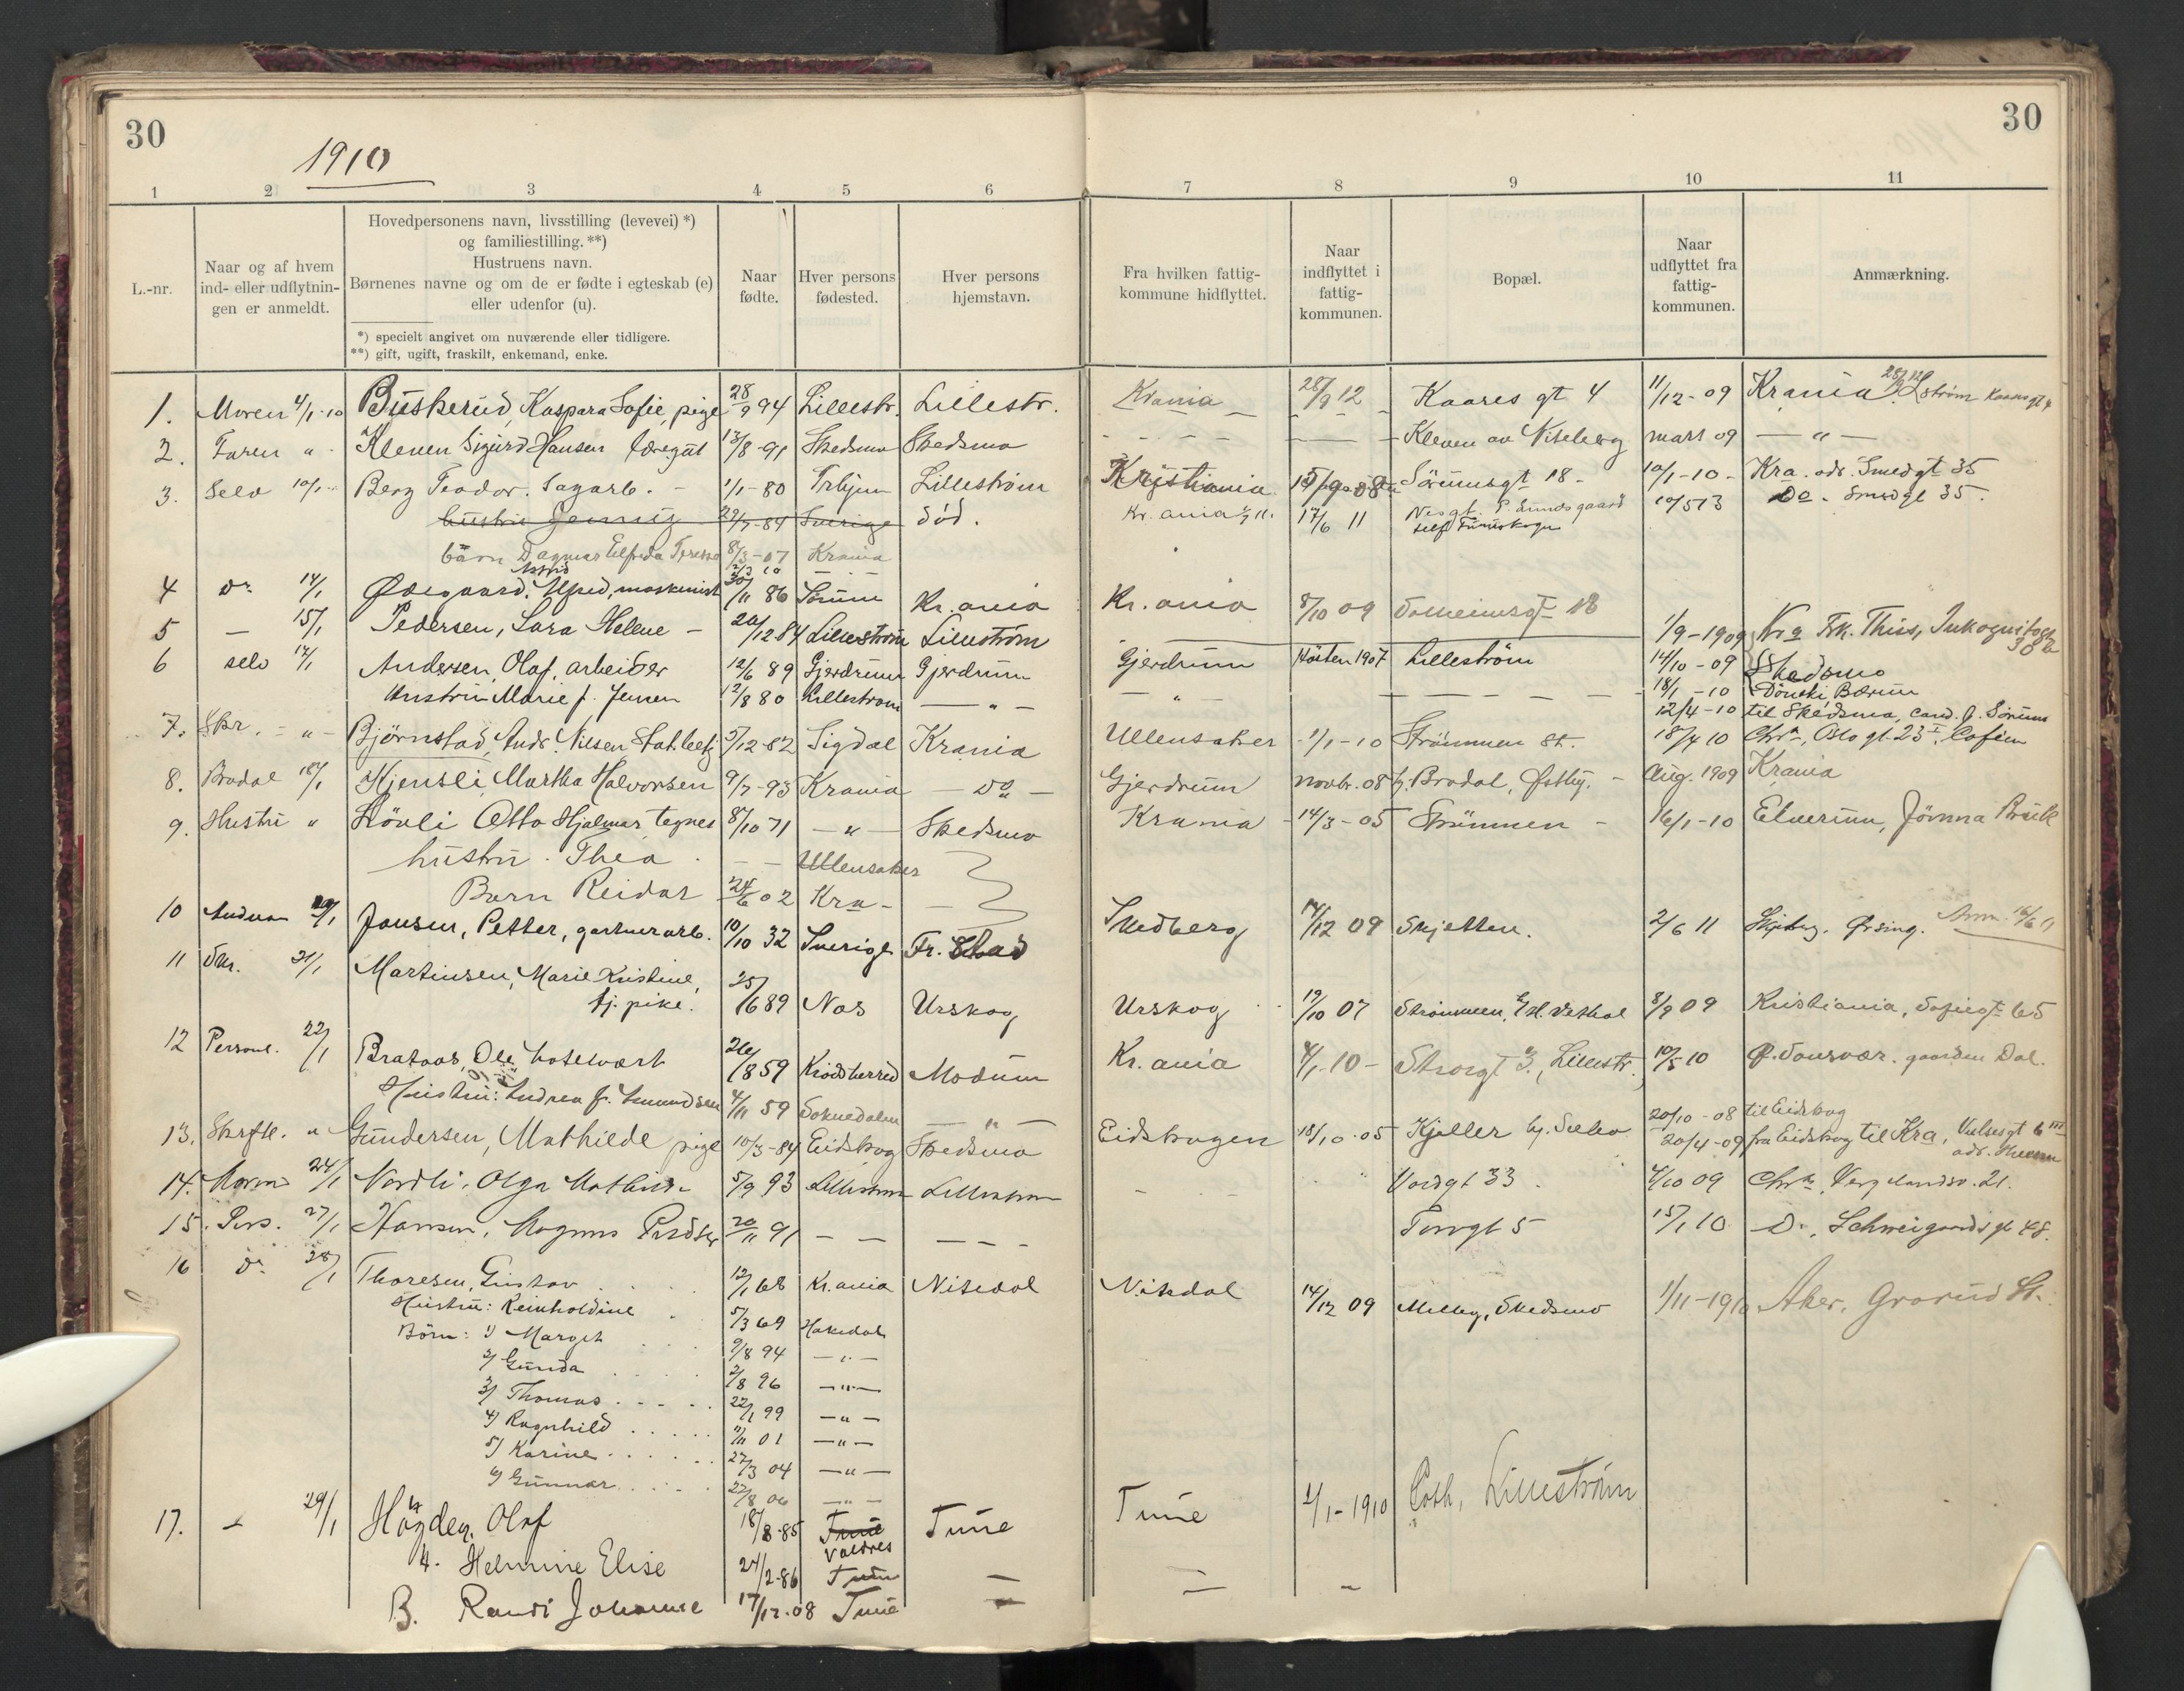 30
30
1910
1 2 3 4 5 6 7 8 9 10 11
L.-nr.
Naar og af hvem ind- eller udflytnin- gen er anmeldt.
Hovedpersonens navn, livsstilling (levevei) *)
og familiestilling. **)
Hustruens navn.
Børnenes navne og om de er fødte i egteskab (e)
eller udenfor (u).
*) specielt angivet om nuværende eller tidligere.
**) gift, ugift, fraskilt, enkemand, enke.
Naar fødte.
Hver persons fødested.
Hver persons hjemstavn.
Fra hvilken fattig- kommune hidflyttet.
Naar indflyttet i fattig- kommunen.
Bopæl.
Naar udflyttet fra fattig- kommunen.
Anmærkning.
1. Moren 4/1-10 Buskerud, Kaspara Sofie, pige 28/9 94 Lillestr. Lillestr. Krania 28/9 12 Kaares gt 4 11/12-09 Krania 28/9 12 Lstrøm Kaaresgt 4
2. Faren " Kleven Sigurd Hansen 13/8-91 Skedsmo Skedsmo - - - - - - Kleven av Niseberg mars 09 — " —
3. Selv 10/1- Berg Teodor. Sagarb. - 1/1-80 Trbjern Lillestrøm Kristiania Sörumsgt 18- 10/1-10- Kra. adr. Smedgt 35
hustru Jenny 29/7-84 Sverige død. Kr.ania 17/6 11 Nesgt. 10/5 13 Do - Smedgt 35.
barn Dagmar Elfrida Terese 8/3-07 Krania
Astrid
4 Do 14/1 Ødegaard, Alfred, maskinist 30/11 86 Sørum Kr.ania Kr.ania 8/10 09 Solheimsgt 18
5 — 15/1 Pedersen, Lara Helene - 20/12 84 Lillestrøm Lillestrøm 1/9-1909 No 2 Frk. Thiis, Inkognitogt 30 b
6 selv 17/1 Andersen, Olaf, arbeider 12/6 89 Gjerdrum Gjerdrum Gjerdrum Høsten 1907 Lillestrøm 14/10-09 Skedsmo
Hustru Marie f. Jensen 12/8 80 Lillestrøm — " — — " — - - - - - 18/1-10 Dönski Bærum
12/4-10 til Skedsmo,
7. Skr. - " - Bjørnstad, Andr. Nilsen Statbetj 5/12-82 Sigdal Krania Ullensaker 1/1-10 Strømmen St. 18/4 10 Chra, Oslo gt 23
8. Brodal 18/1 Hjensli, Martha Halvorsen 9/7-93 Krania — Do — Gjerdrum novbr. 08 hj. Brodal, Østby. - Aug. 1909 Krania
9. Hustru " Høvli Otto Hjalmar, tegner 8/10 71 — " — Skedsmo Krania - 14/3-05 Strømmen - 16/1-10 Elverum, Jömna Bruk
hustru. Thea. - - Ullensaker
Barn Reidar 24/6 02 Kra- -
10 Jonsen, Petter, gartnerarb. 10/10 32 Sverige Fr. Stad Skedberg 14/12 09 Skjetten. 2/6 11 Anm. 16/6 11
11 Skr. 21/1 Martinsen, Marie Kristine,
tj. pike. 25/6 89 Nas Urskog Urskog 19/10 07 Strømmen, 8/9 09 Kristiania, Sofiegt 65
12 Personl. 22/1 Brataas, Ole hotelvært 26/8 59 Krødsherred Modum Kr.ania 4/1-10- Storgt 3, Lillestr. 10/5 10 gaarden Dal.
Hustru: Andrea f. Amundsen 4/11 59 Soknedalen — " —
13. Skrftl. " Gundersen, Mathilde pige 10/3-84 Eidskog Skedsmo Eidskogen 18/10-05 Kjeller hj. Sæbo 20/10-08 til Eidskog
20/4-09 fra Eidskog til Kra,
14. Moren 24/1 Nordli, Olga Mathilde 5/9 93 Lillestrøm Lillestrøm - - - Voldgt 33. 4/10 09 Chra, Vergelandsv. 21.
15. Pers. 27/1 Hansen, Magnus 20/11 91 — — — — — Torvgt 5 15/1 10 Do, Schweigaards gt 48.
16 Do 28/1 Thoresen, Gustav 12/1 68 Kr.ania Nitedal Nitedal 14/12 09 Melby, Skedsmo 1/11-1910 Aker, Grorud St.
Hustru: Reinholdine 5/3 69 Hakedal
Børn: 1) Margit 9/8 94 — " —
2) Gunda 2/8 96 — " —
3) Thomas 22/1 99 — " —
4) Ragnhild 11/11 01 — " —
5) Karine 27/3 04 — " —
6) Gunnar 22/8 06 — " —
17. - 29/1 Høgden, Olaf 18/8-85 Tune Tune Tune 1/1-1910 Lillestrøm
Valdres
H. Helmine Elise 24/2-86 Tune — — —
B. Randi Johanne 17/12-08 Tune —